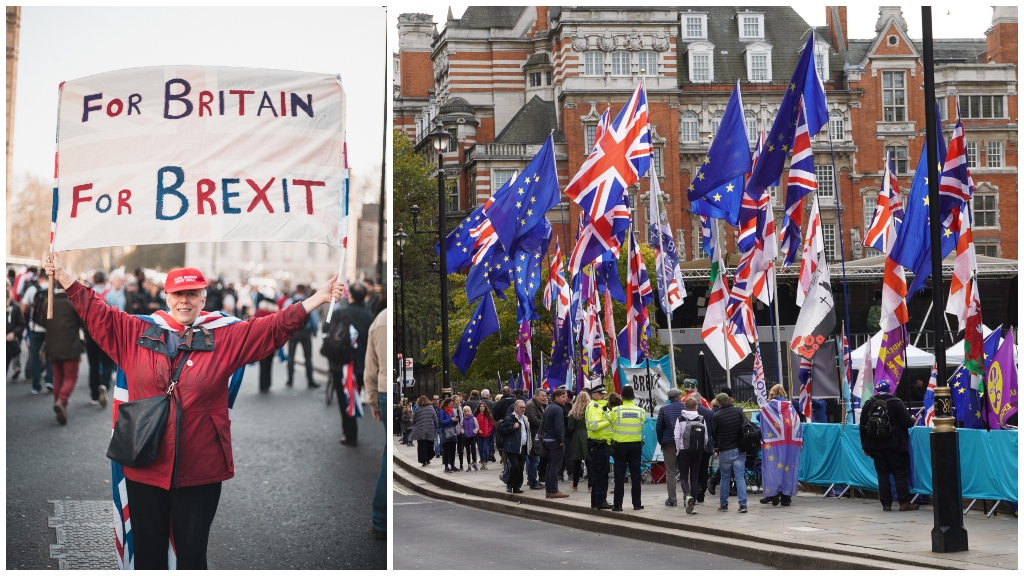 FOR BRITAIN
FOR BREXIT
BREX